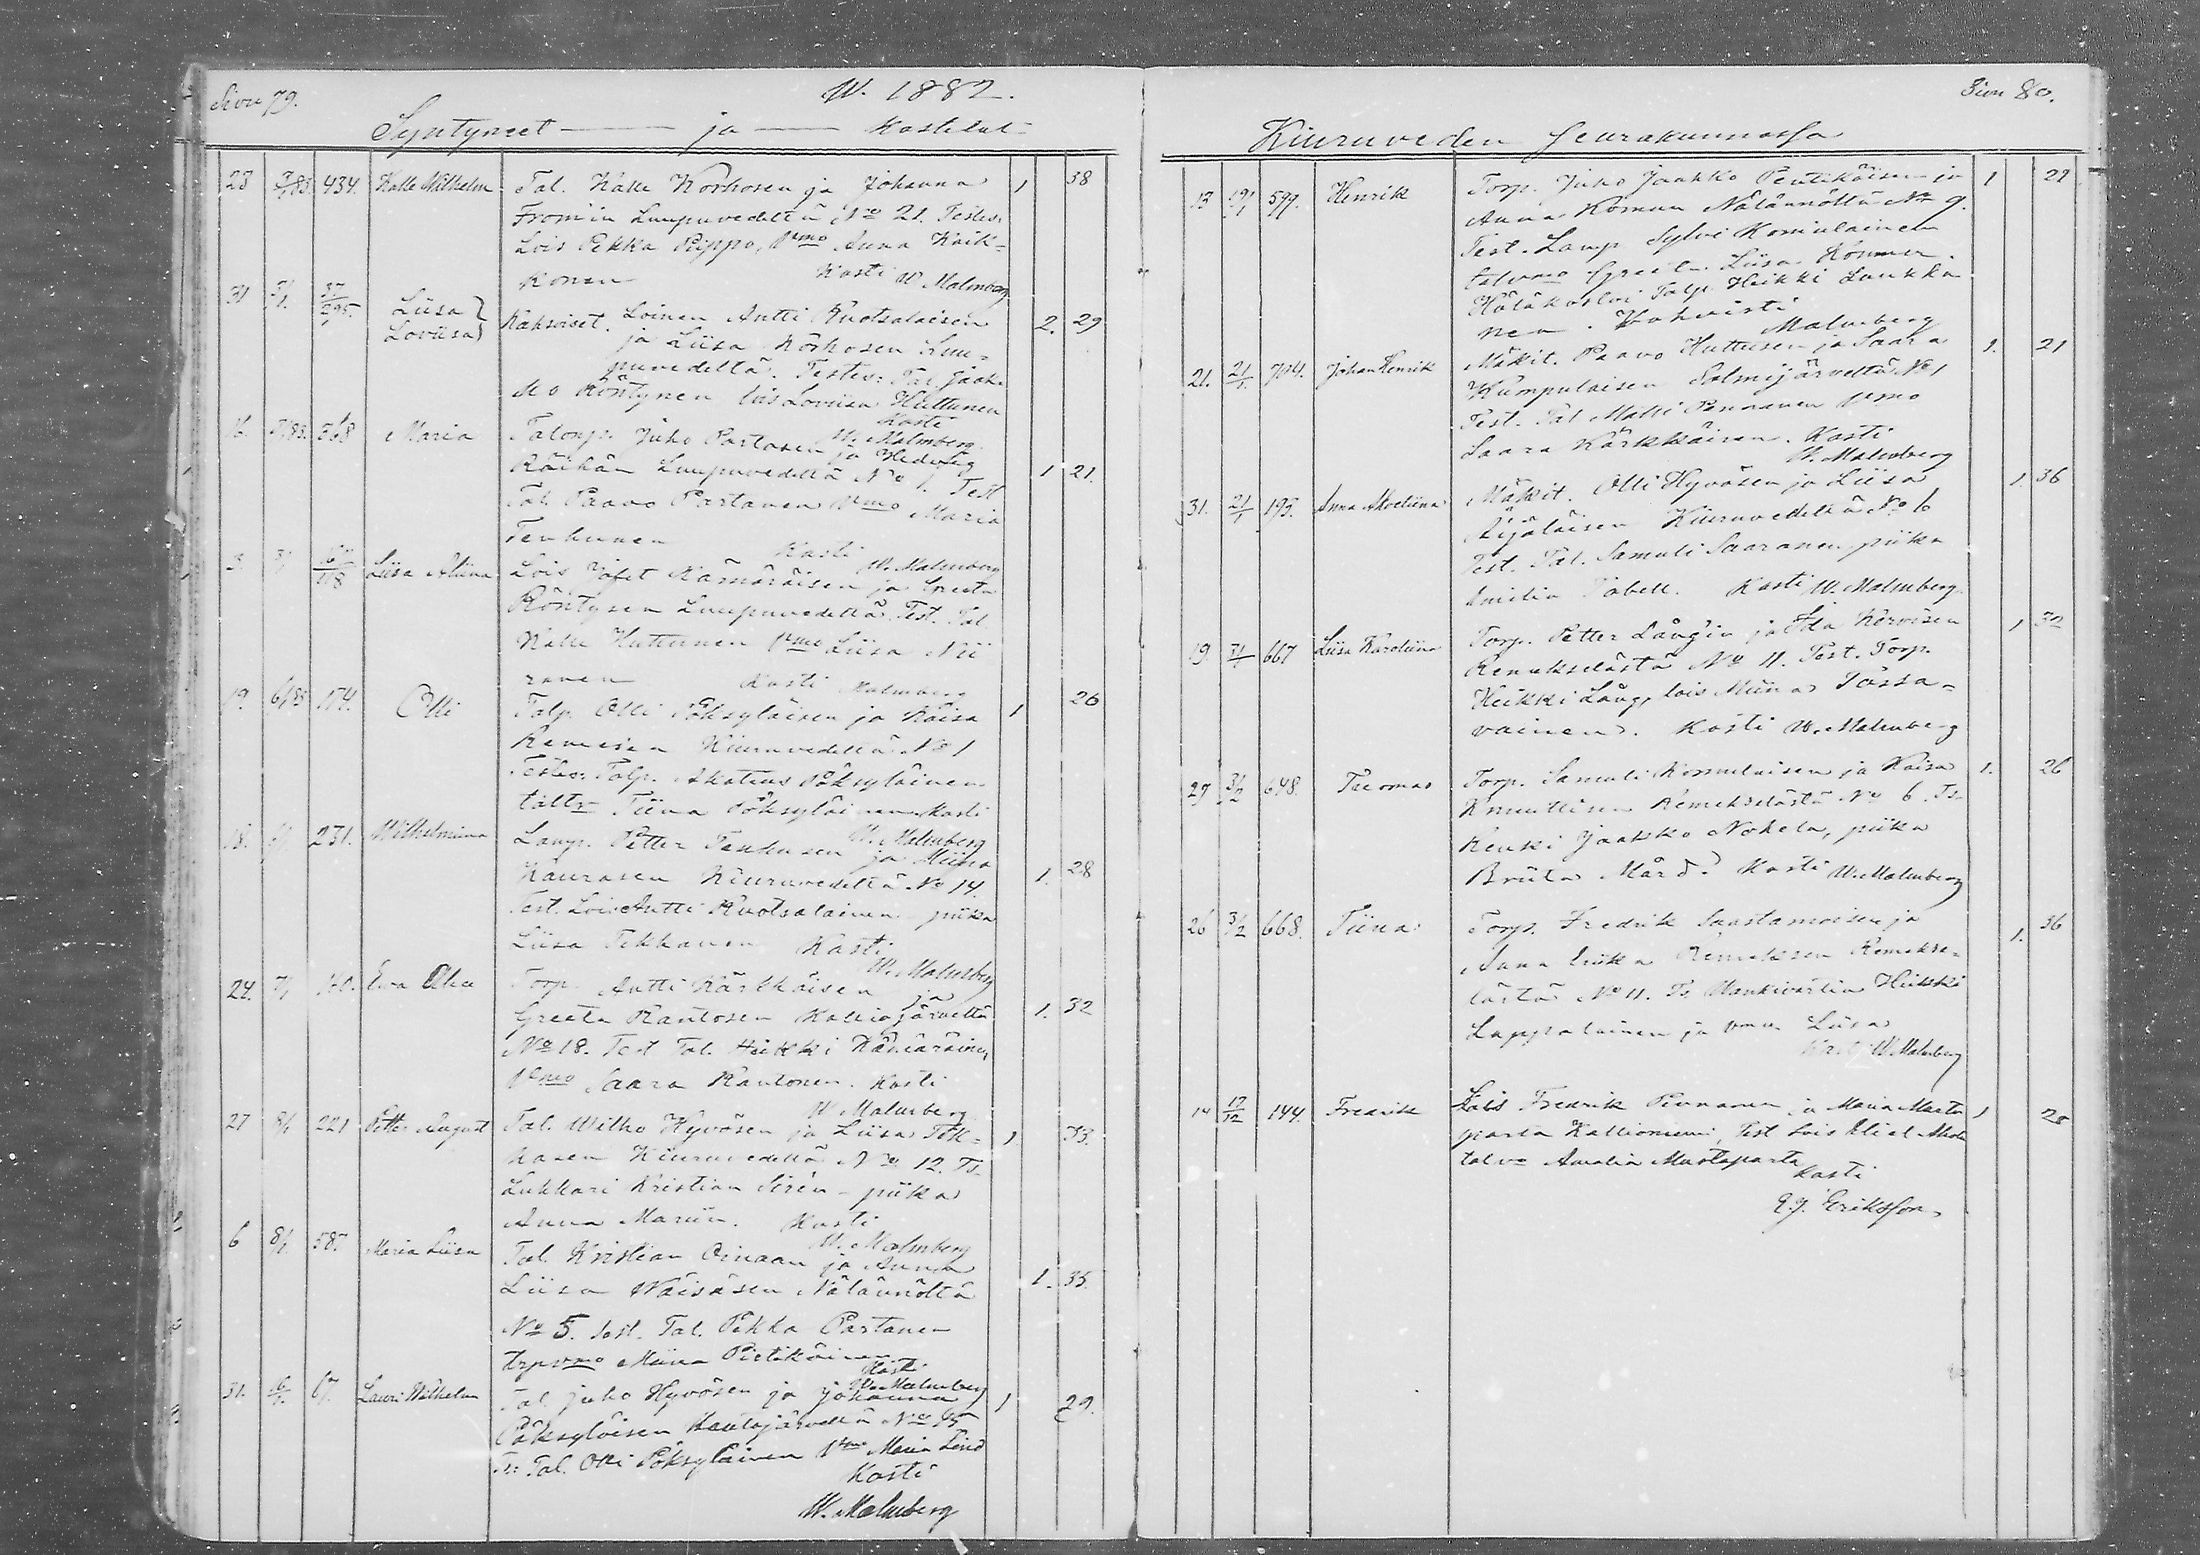 Sivu 79.
W. 1882.
Syntyneet — ja — Kastetut
23 3/1 83. 434. Kalle Wilhelm Tal. Kalle Korhosen ja Johanna 1 38
Fromin Luupuvedeltä No 21. Testes:
Lois Pekka Rippo, vmo Anna Kaik-
konen Kasti W Malmberg
31 Liisa Loviisa Kaksoiset. Loinen Antti Ruotsalaisen 2. 29
ja Liisa Korhosen Luu-
puvedeltä. Testes: Tal. Jaak-
ko Röntynen lois Loviisa Huttunen
Kasti W. Malmberg
16. 368 Maria Talonp. Juho Partasen ja Hedvig
Räihän Luupuvedeltä No 1. Test 1 21.
Tal. Paavo Partanen vmo Maria
Tenhunen Kasti W. Malmberg
3. Liisa Aliina Lois Jafet Kämäräisen ja Greeta
Röntysen Luupuvedeltä Test. Tal
Kalle Huttunen vmo Liisa Nii
ranen Kasti Malmberg
19. 6/1 83 174. Olli Talp. Olli Pöksyläisen ja Kaisa 1 26
Remesen Kiuruvedeltä No 1
Testes: Talp. Akatius Pöksyläinen
taltr Tiina Pöksyläinen Kasti
W. Malmberg
18. 231. Wilhelmiina Lamp. Petter Tenhusen ja Miina
Kaurasen Kiuruvedeltä No 14. 1. 28
Test. Lois Antti Ruotsalainen piika
Liisa Tikkanen Kasti
W. Malmberg
24. Eva Torp. Antti Kärkkäisen ja
Greeta Rautosen Kalliojärveltä 1. 32
No 18. Test Tal. Heikki Kämäräinen
vmo Saara Rautonen. Kasti
W Malmberg
27 8/1 221 Petter August Tal. Wilho Hyvösen ja Liisa Tik- 1 33.
kasen Kiuruvedeltä No 12. Ts.
Lukkari Kristian Sirén - piika
Anna Kasti
W. Malmberg
6 8/1 587. Maria Liisa Tal. Kristian Oinaan ja Anna
Liisa Wäisäsen Näläntöltä 1. 35.
No 5. Test. Tal. Pekka Partanen
trpvmo Miina Pietikäinen
Kasti W. Malmberg
31. 67. Lauri Wilhelm Tal. Juho Hyvösen ja Johanna 1 29.
Pöksyläisen Rautajärveltä No 15
Ts: Tal. Olli Pöksyläinen vmo Maria Lind
Kasti
W. Malmberg
Sivu 80.
Kiuruveden Seurakunnassa
13 19/1 599. Henrik Torp. Juho Jaakko Pentikäisen ja 1 29
Anna Komun Näläntöltä No 9.
Test. Lamp. Sylvi Komulainen
talvmo Greeta Liisa
Hätäkastoi Talp. Heikki Laukka
nen. Wahvisti
Malmberg
21. 21/1 704. Johan Henrik Mäkit. Paavo Huttusen ja Saara 1. 21
Kumpulaisen Salmijärveltä No 1
Test. Tal Matti Pennanen vmo
Saara Kärkkäinen. Kasti
W. Malmberg
31. 21/1 193. Anna Akveliina Mäkit. Olli Hyvösen ja Liisa 1 36
Äijäläisen Kiuruvedeltä No 6
Test. Tal. Samuli Saaranen, piika
Emilia Tabell. Kasti W. Malmberg
19. 31/1 667 Liisa Karoliina Torp. Petter Lång'in ja Ida Kärväsen 1 32
Remekselästä No 11. Test. Torp.
Heikki Lång, lois Miina Tossa-
vainen. Kasti W. Malmberg
27 3/2 648. Tuomas Torp. Samuli Komulaisen ja Kaisa 1. 26
Knuuttisen Remekselästä No 6. Ts.
Renki Jaakko Nokela, piika
Briita Mård. Kasti W. Malmberg
26 3/2 668. Tiina Torp. Fredrik Saastamoisen ja 1. 36
Anna Erika Remeksen Remekse-
lästä No 11. Ts. Wankivartia Heikki
Lappalainen ja vmo Liisa
Kasti W. Malmberg
14 17/12 144. Fredrik Lois Fredrik Pennanen ja Maria Musta 1 28
parta Kallioniemi, Test Lois
talvo Amalia Mustaparta
Kasti
E.J. Eriksson.